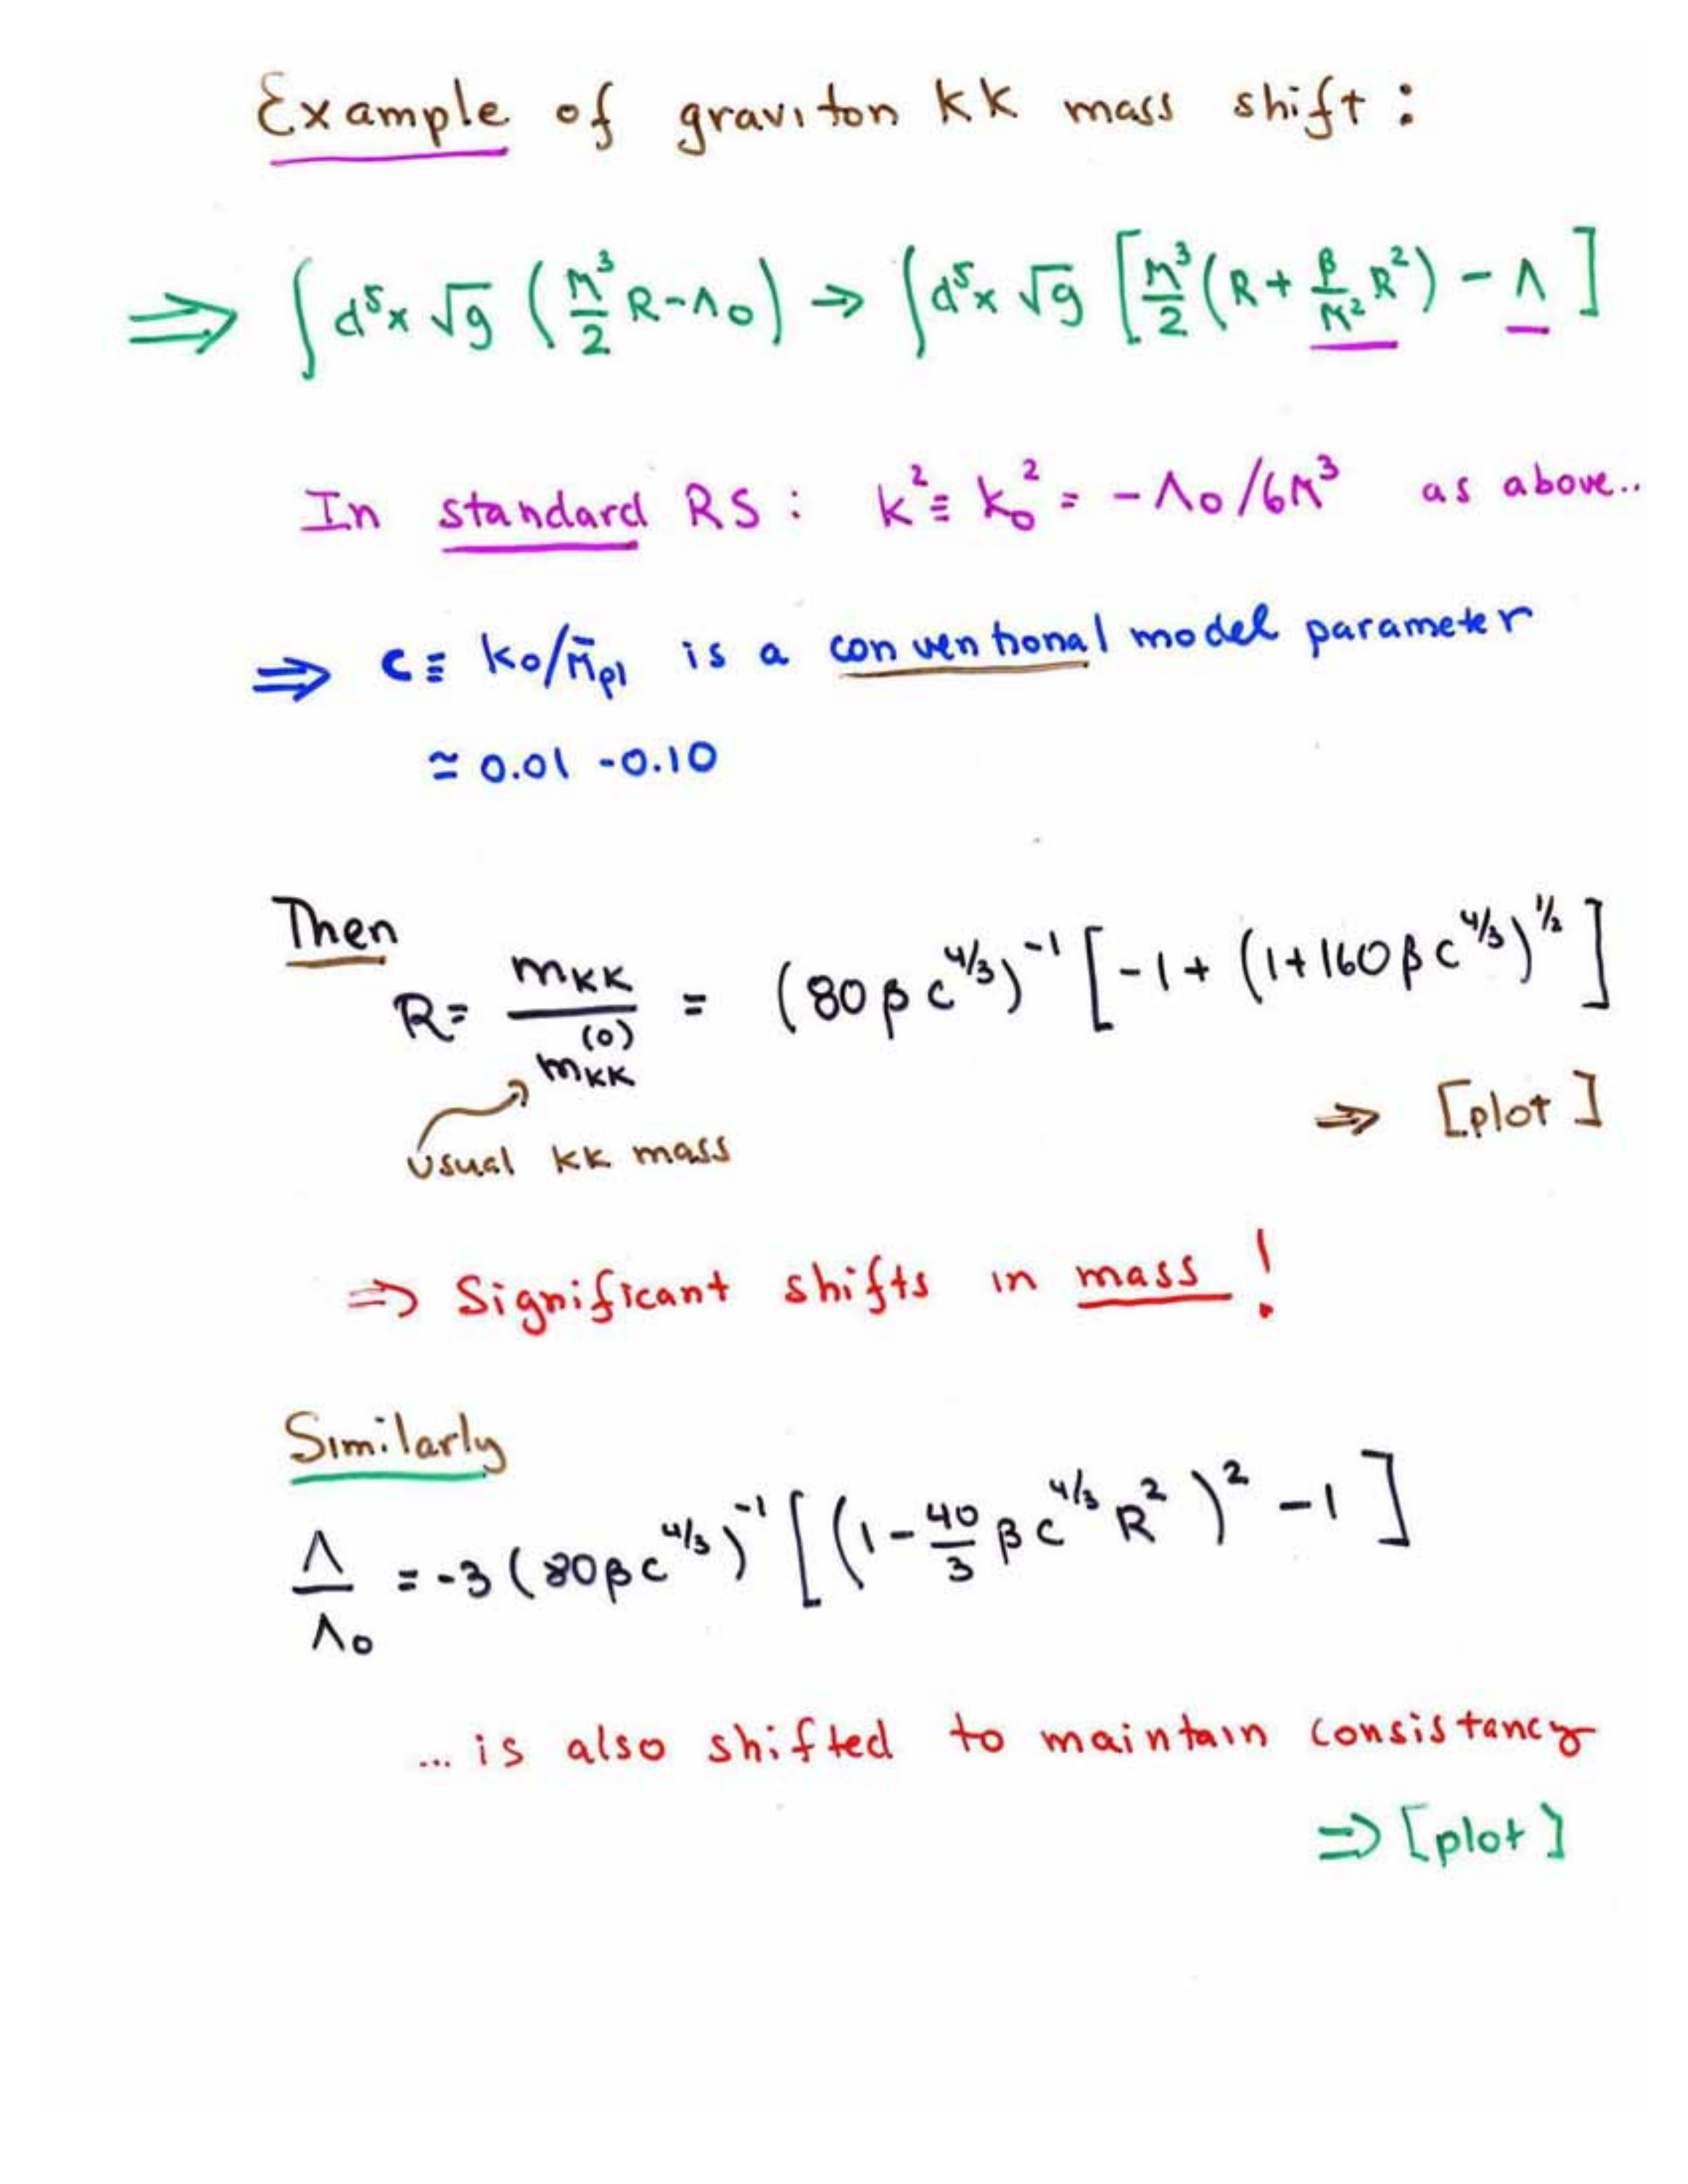 Example of graviton KK mass shift :
⇒ ∫ d⁵x √g ( M³/2 R - Λ₀ ) → ∫ d⁵x √g [ M³/2 ( R + β/M² R² ) - Λ ]
In standard RS : k² ≡ k₀² = - Λ₀ / 6M³ as above..
⇒ c ≡ k₀/M̄pl is a conventional model parameter
≃ 0.01 - 0.10
Then
R = mKK / mKK^(0) = (80 β c^4/3)^-1 [ -1 + (1 + 160 β c^4/3)^1/2 ]
usual KK mass
⇒ [plot]
⇒ Significant shifts in mass !
Similarly
Λ/Λ₀ = -3 (80 β c^4/3)^-1 [ (1 - 40/3 β c^4/3 R²)² - 1 ]
... is also shifted to maintain consistancy
⇒ [plot]